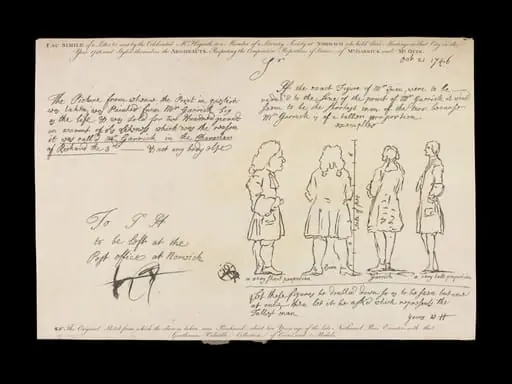 FAC SIMILE of a Letter &c sent by the Celebrated Mr Hogarth to a Member of a Society at NORWICH who held their Meetings in that City in the
Year 1746 and Styled themselves the Respecting the Comparative of Mr GARRICK and Mr QUIN.
Sr
Octr 21 1746
The Picture from whence the Print in question
was taken, was Painted from Mr Garrick big
as the life & was sold for two Hundred pounds
on account of its Likeness which was the reason
it was call'd Mr Garrick in the Character
of Richard the 3rd & not any body else
If the exact Figure of Mr Quin, were to be
reduc'd to the size of the print of Mr Garrick it would
seem to be the shortest man of the two because
Mr Garrick is of a taller proportion.
examples
To T H
to be left at the
Post office at Norwich
a very short proportion
Quin
Garrick
a very tall proportion
Let these figures be doubled down so as to be seen but one
at once, then let it be asked which represents the
Tallest man.
yours W H
The Original Sketch from which the above is taken, was Purchased about ten Years ago of the late Nathaniel with that
Gentlemans Valuable Collection of Coins and Medals.